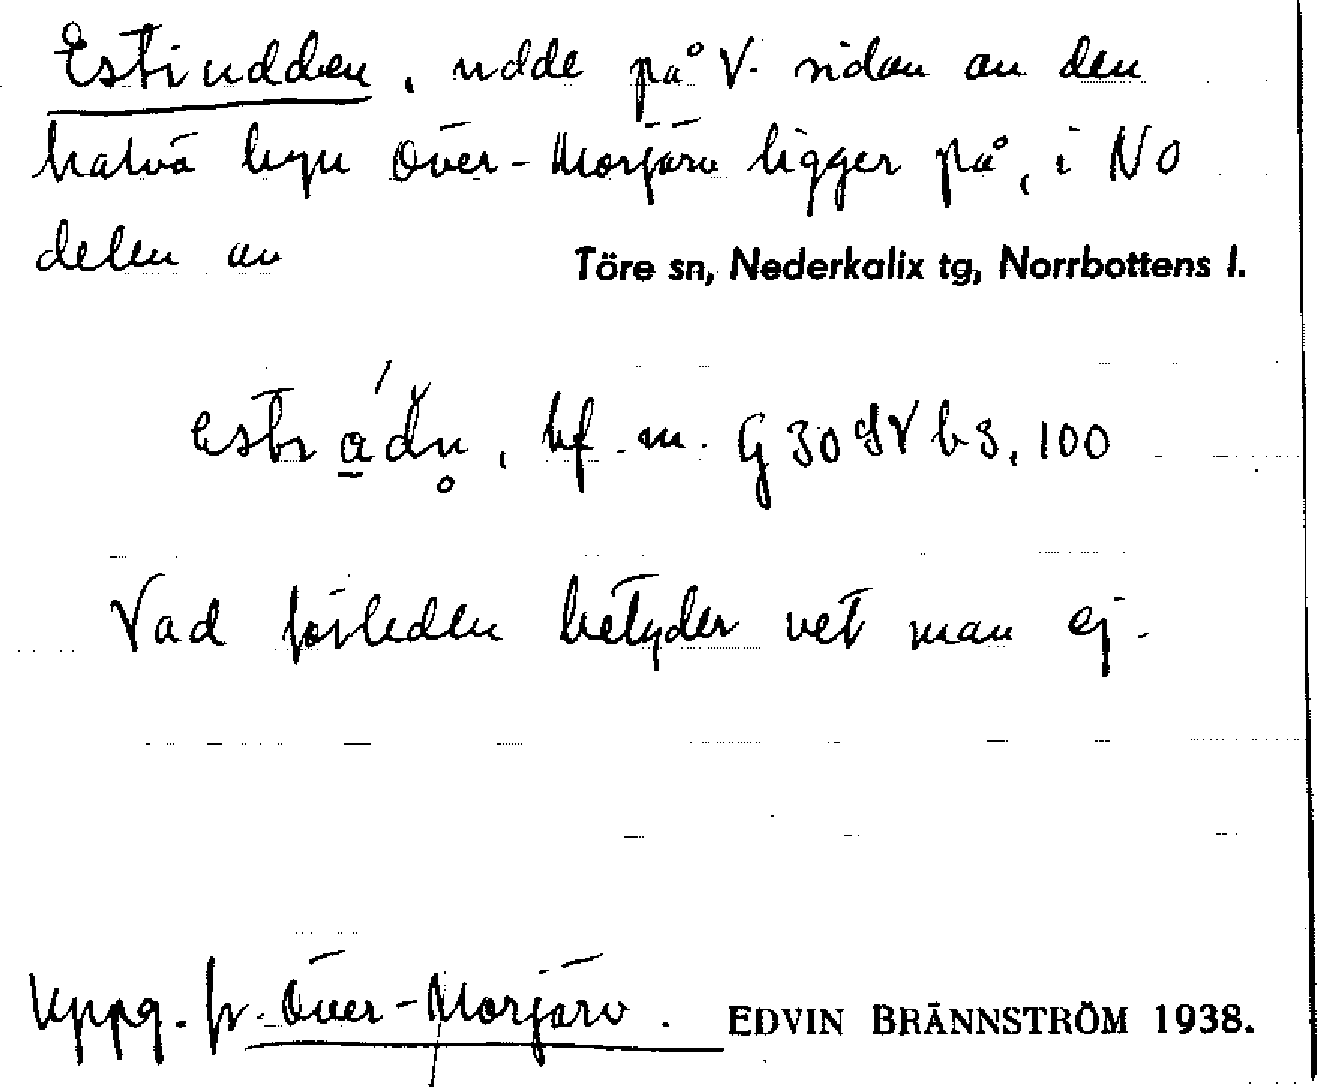 Estiudden, udde på V. sidan av den
halvö byn Över-Morjärv ligger på, i NO
delen av
Töre sn, Nederkalix tg, Norrbottens l.
bf. m. G 30 SV b 3, 100
Vad förleden betyder vet man ej.
Uppg. fr. Över-Morjärv. EDVIN BRÄNNSTRÖM 1938.